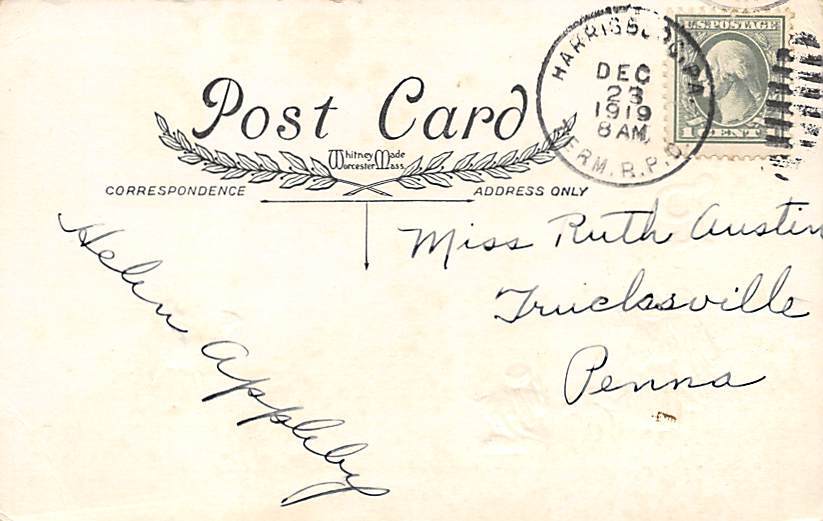 Post Card
Whitney Made
Worcester Mass.
CORRESPONDENCE
ADDRESS ONLY
HARRISBURG, PA.
DEC
23
1919
8 AM
TERM. R.P.O.
U.S. POSTAGE
1 CENT 1
Helen Appleby
Miss Ruth Austin
Trucksville
Penna